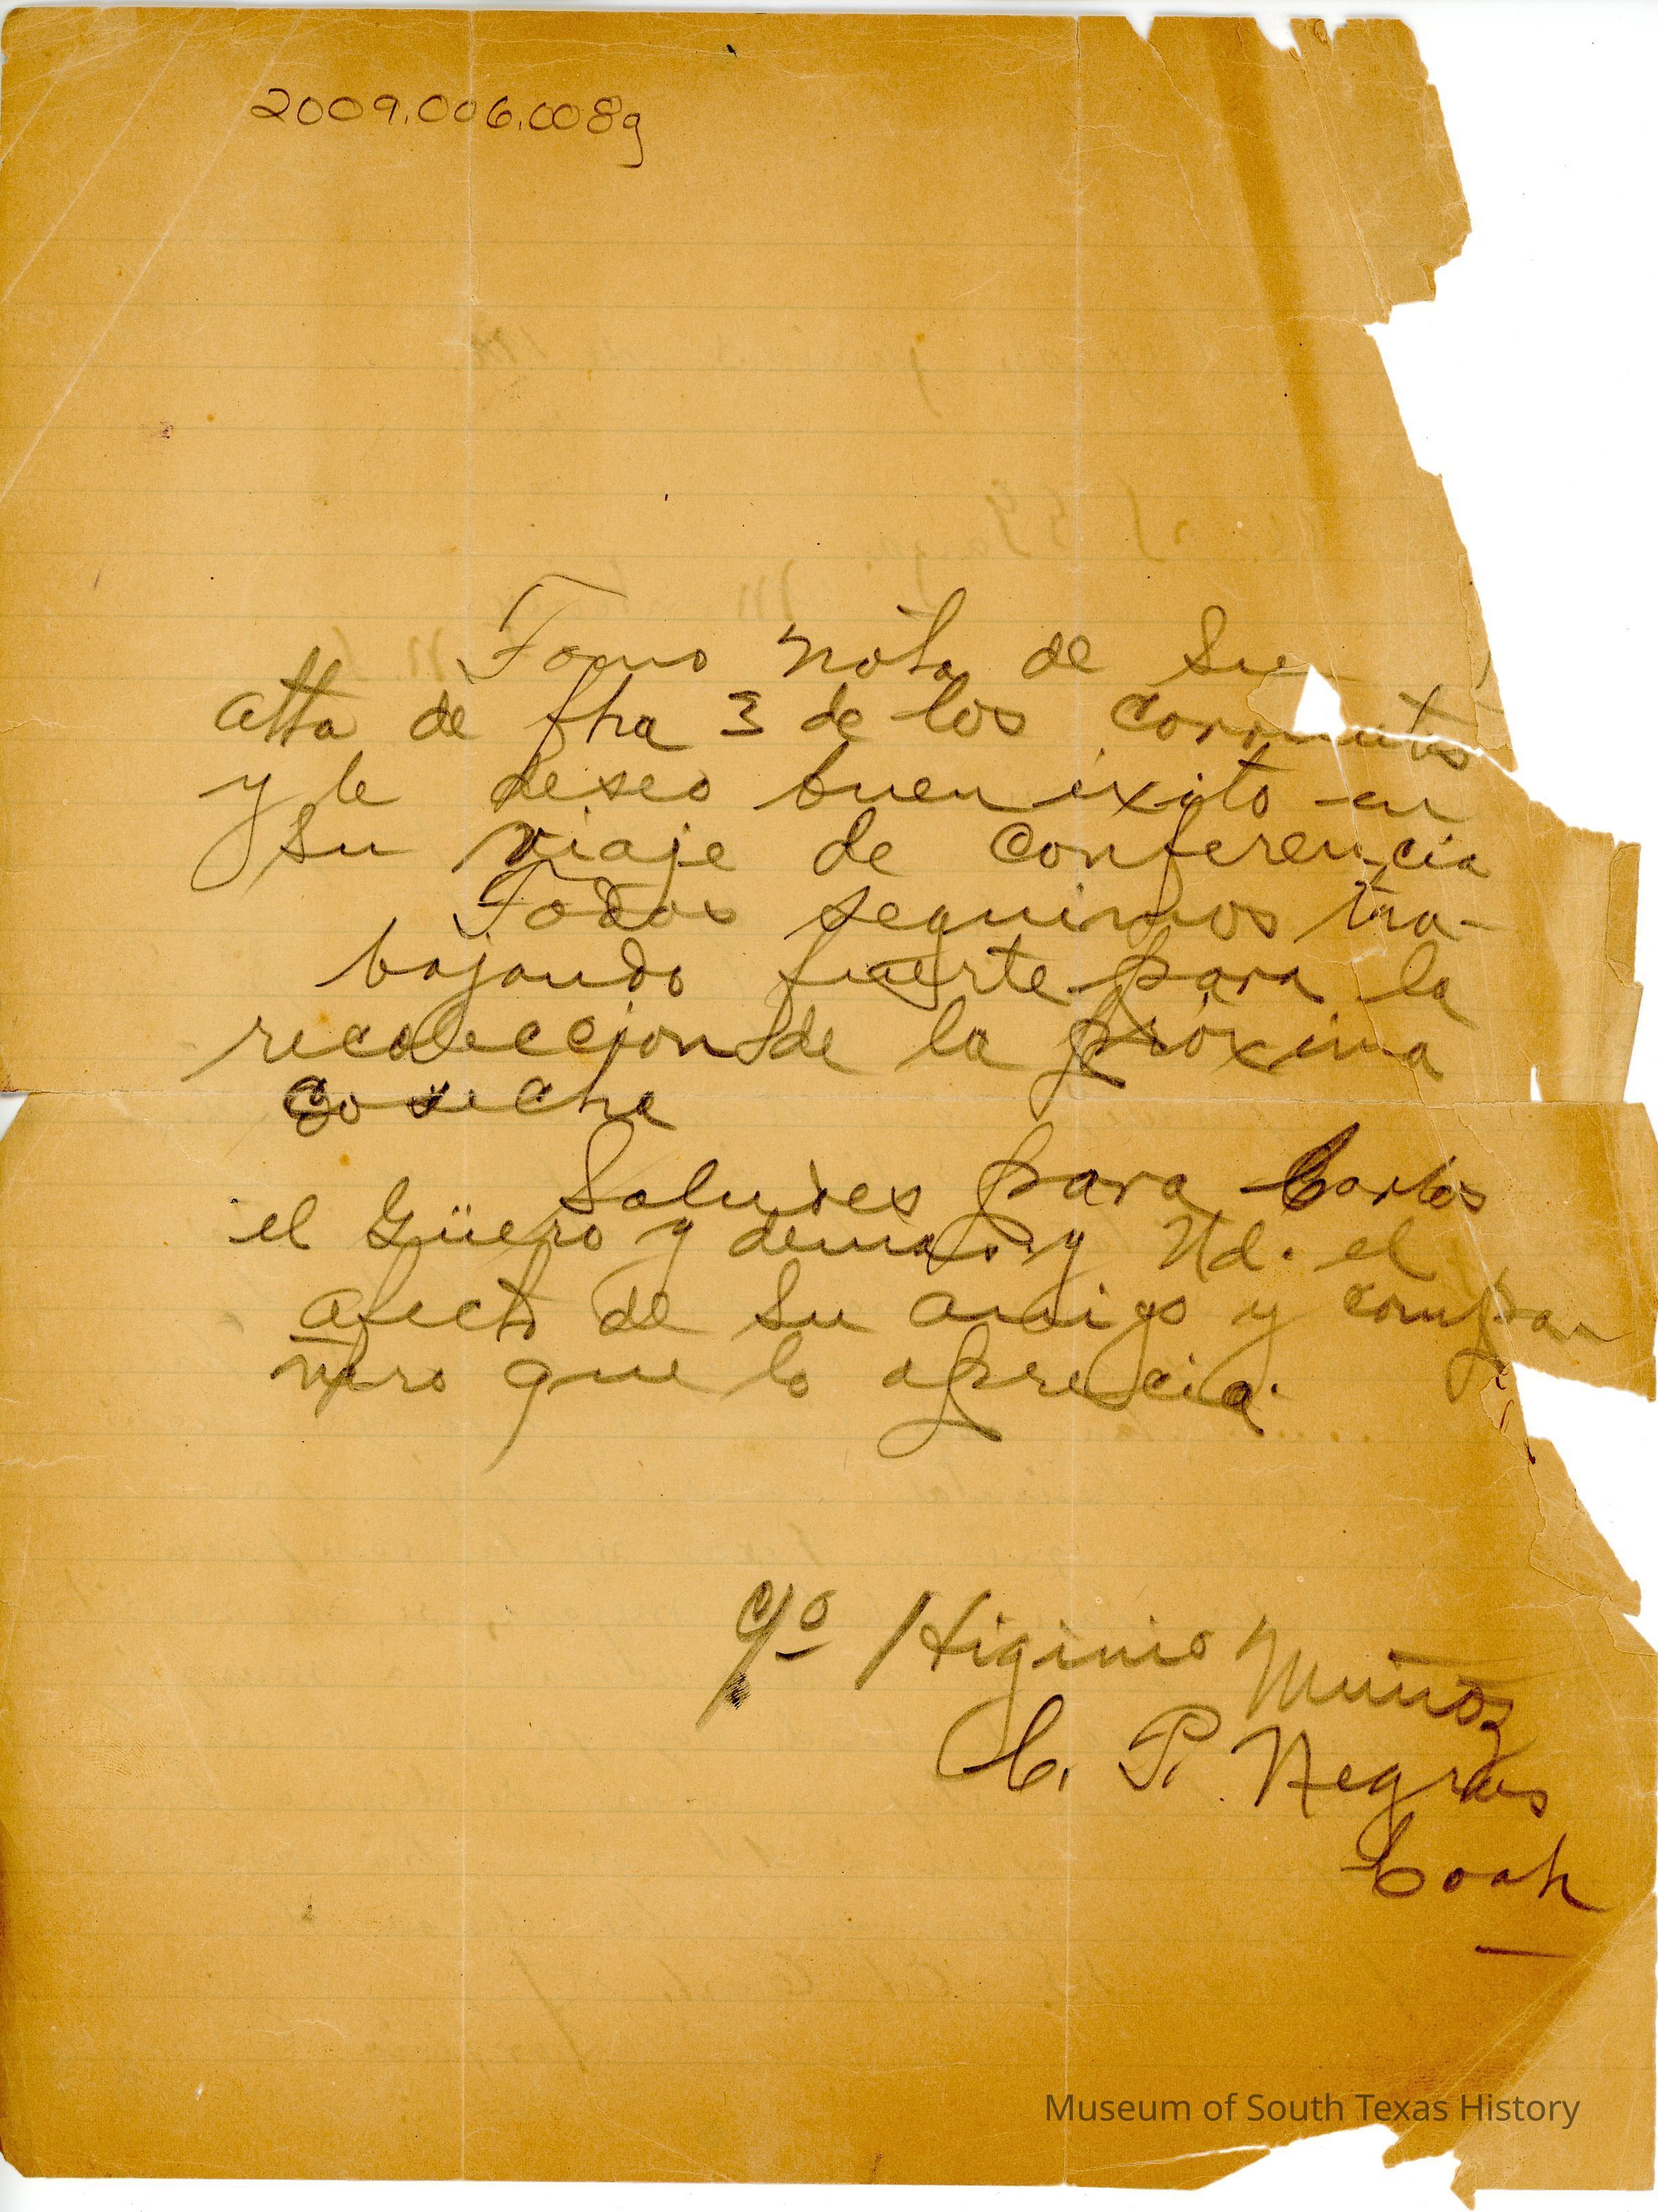 2009.006.008g
Tomo nota de su
atta de fha 3 de los corrientes
y le deseo buen exito en
su viaje de conferencia
Todos seguimos tra-
bajando fuerte para la
recoleccion de la próxima
cosecha
Saludes para Carlos
el Güero y demas y Ud. el
afecto de su amigo y compa
ñero que lo aprecia.
Higinio Muñoz
C. P. Negras
Coah
Museum of South Texas History